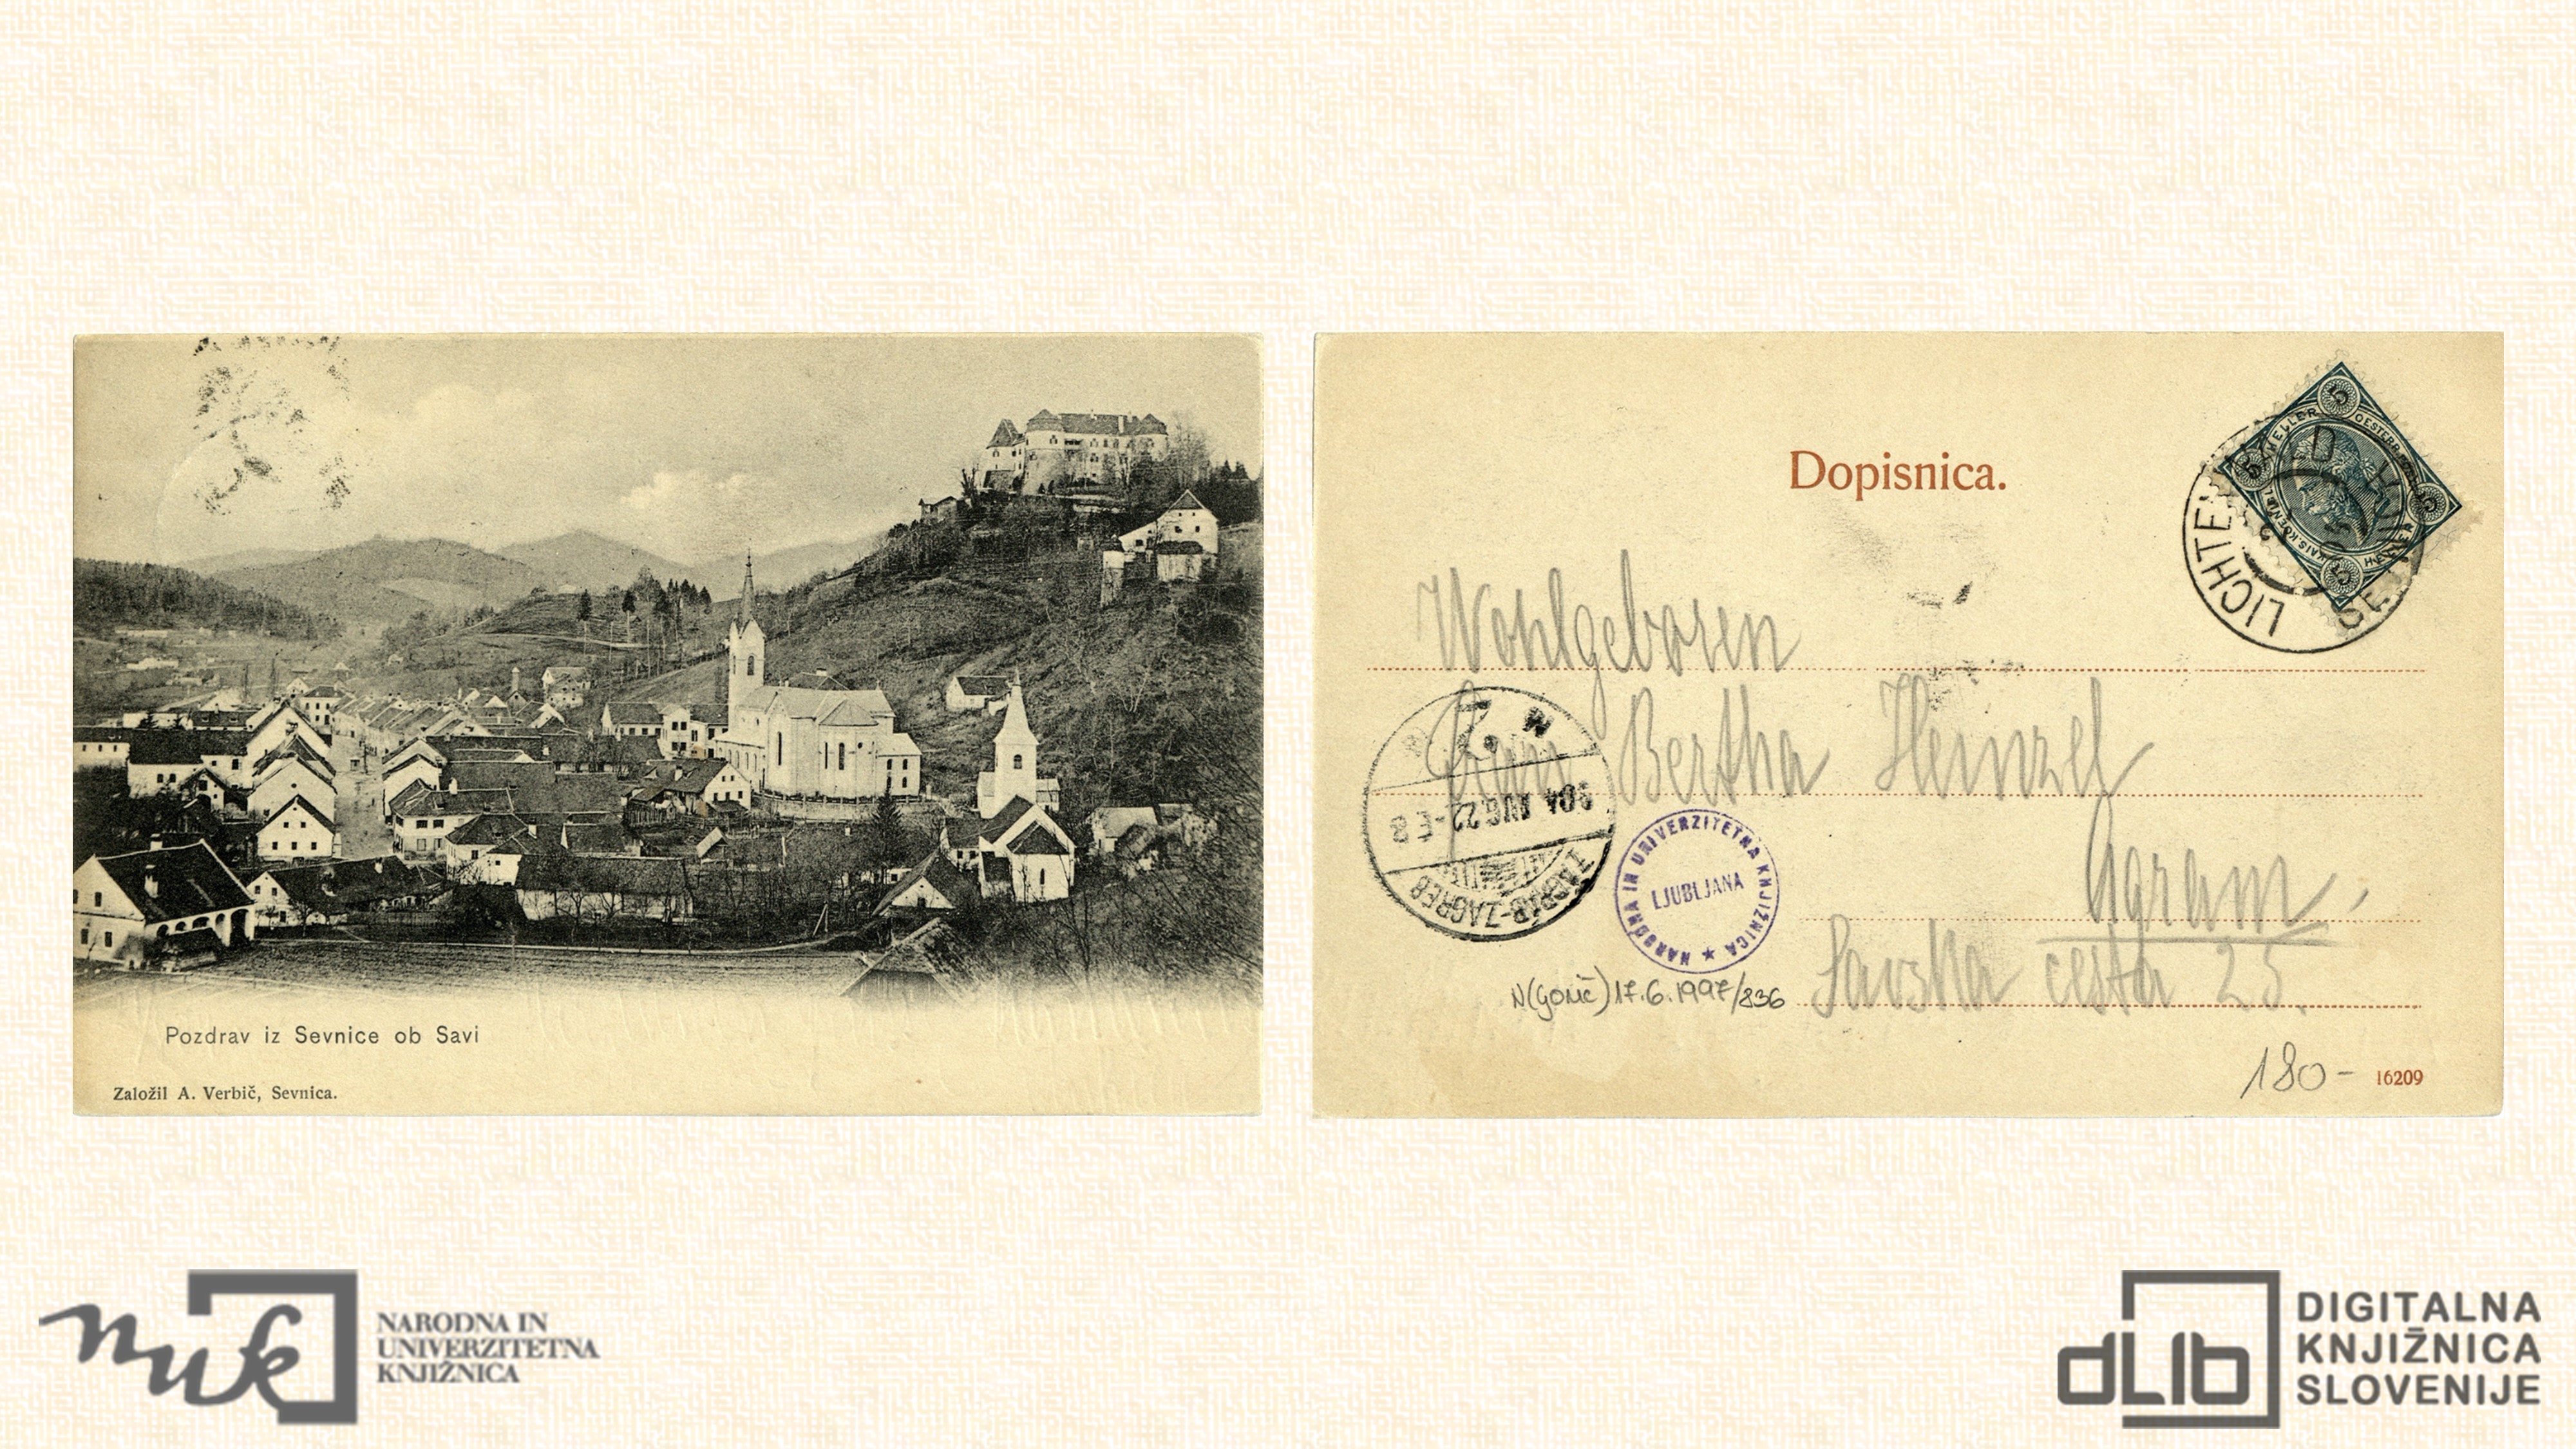 Pozdrav iz Sevnice ob Savi
Založil A. Verbič, Sevnica.
Dopisnica.
Wohlgeboren
Frau Bertha Heinzel
Agram,
Savska cesta 25.
904 AUG 22
ZÁGRÁB-ZAGREB
NARODNA IN UNIVERZITETNA KNJIŽNICA ★
LJUBLJANA
N(Gorič) 17.6.1997/836
180-
16209
5 HELLER 5
NARODNA IN
UNIVERZITETNA
KNJIŽNICA
nuk
dLib
DIGITALNA
KNJIŽNICA
SLOVENIJE